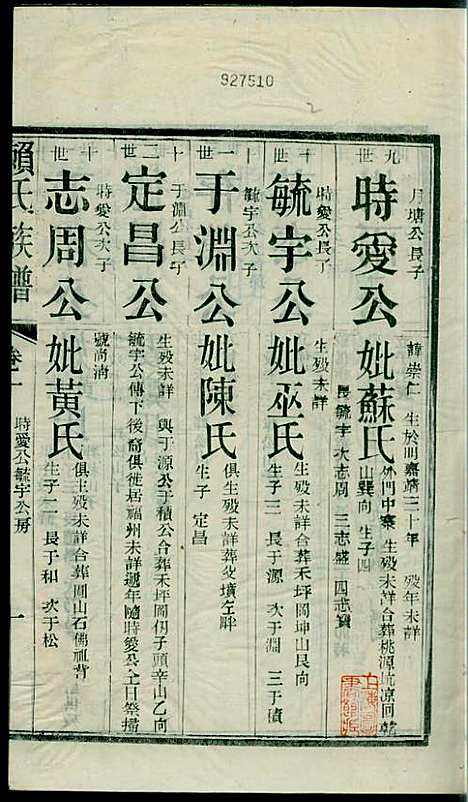 927510
2
九世
月塘公長子
時愛公
諱崇仁 生於明嘉靖三十年 歿年未詳
妣蘇氏
外門中寨 生歿未詳合葬桃源坑凉回乾
山巽向 生子四
長毓宇 次志周 三志盛 四志寶
十世
時愛公長子
毓宇公
生歿未詳
妣巫氏
生歿未詳合葬禾坪岡坤山艮向
生子三 長于源 次于淵 三于積
十一世
毓宇公次子
于淵公
妣陳氏
俱生歿未詳葬
墳左畔
生子 定昌
十二世
于淵公長子
定昌公
生歿未詳 與于源公于積公合葬禾坪岡伯子頭辛山乙向
毓宇公傳下後裔俱徙居福州未詳遞年隨時愛公仝日祭掃
十世
時愛公次子
志周公
號尚清
妣黃氏
俱生歿未詳合葬圓山石佛祖背
生子二 長于和 次于松
賴氏族譜
卷一
時愛公毓宇公房
一